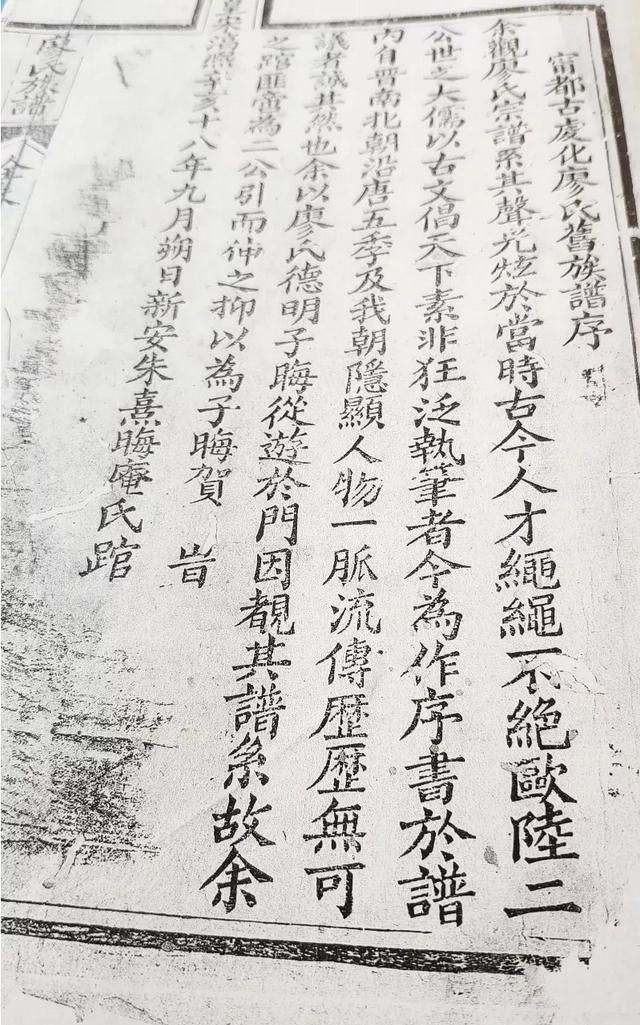 甯都古虔化廖氏舊族譜序
余觀廖氏宗譜系其聲光炫於當時古今人才繩繩不絕歐陸二
公世之大儒以古文倡天下素非狂泛執筆者今為作序書於譜
內自晋南北朝沿唐五季及我朝隱顯人物一脈流傳歷歷無可
議者誠其然也余以廖氏德明子晦從遊於門因覩其譜系故余
之䟺匪啻為二公引而伸之抑以為子晦賀 旹
皇宋淳熙辛亥十八年九月朔日新安朱熹晦庵氏䟺
廖氏族譜